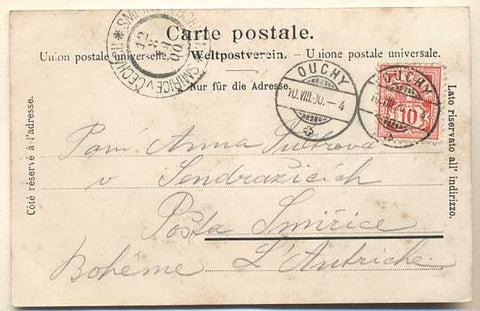 Carte postale.
Union postale universelle. Weltpostverein. Unione postale universale.
Nur für die Adresse.
Côté réservé à l'adresse.
Lato riservato all' indirizzo.
OUCHY
10.VIII.00.-4
OUCHY
10
SMIŘICE V ČECHÁCH
12
8
00
Paní Anna
v Sendražicích
Pošta Smiřice
Bohême L'Autriche